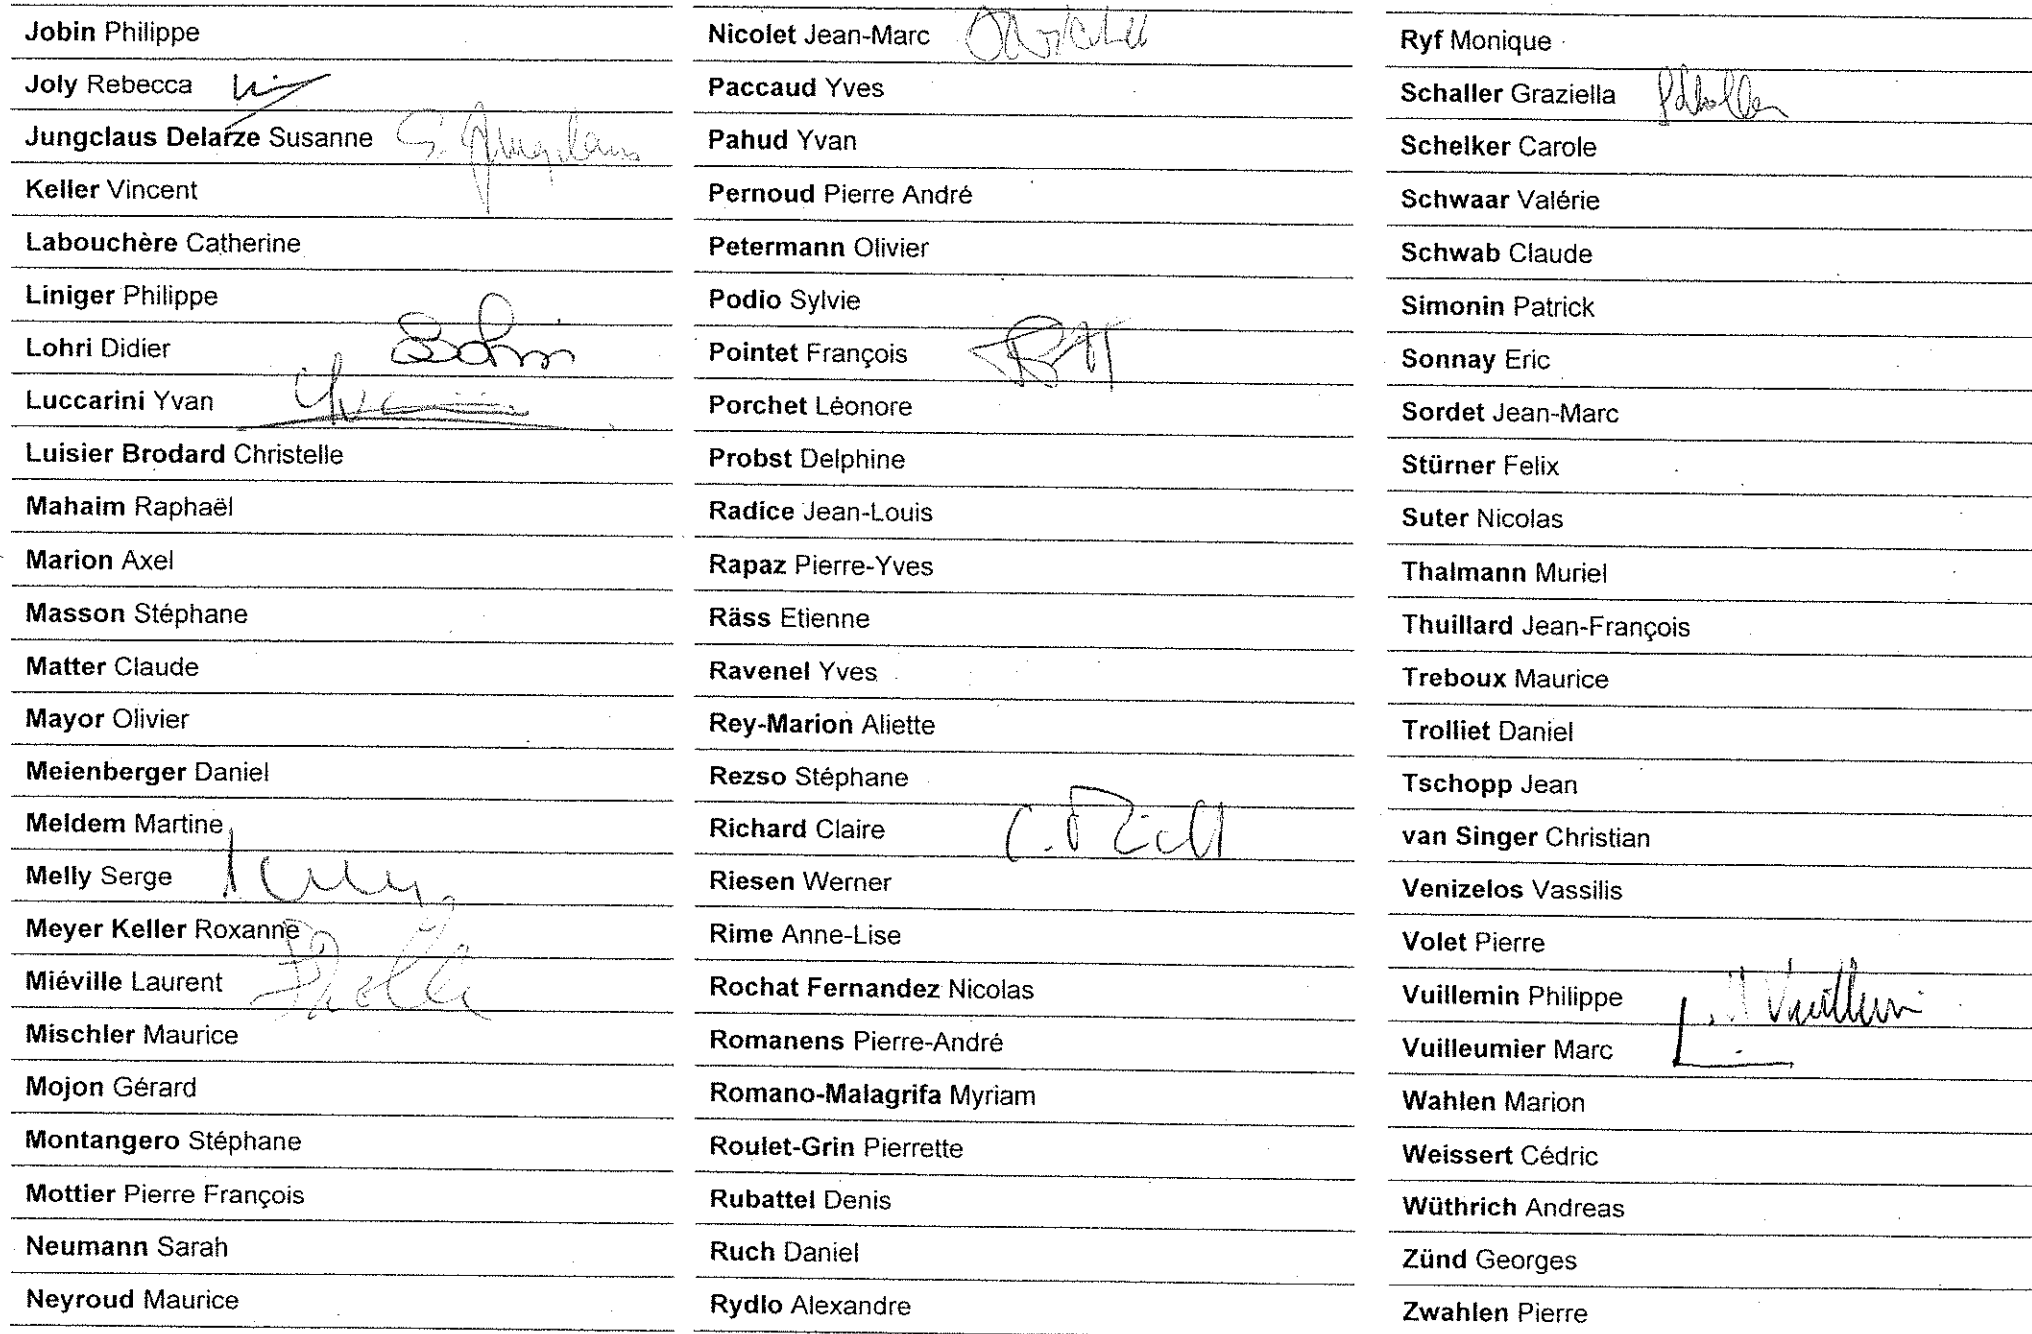 Jobin Philippe
Joly Rebecca
Jungclaus Delarze Susanne S. Jungclaus
Keller Vincent
Labouchère Catherine
Liniger Philippe
Lohri Didier
Luccarini Yvan
Luisier Brodard Christelle
Mahaim Raphaël
Marion Axel
Masson Stéphane
Matter Claude
Mayor Olivier
Meienberger Daniel
Meldem Martine
Melly Serge
Meyer Keller Roxanne
Miéville Laurent
Mischler Maurice
Mojon Gérard
Montangero Stéphane
Mottier Pierre François
Neumann Sarah
Neyroud Maurice
Nicolet Jean-Marc
Paccaud Yves
Pahud Yvan
Pernoud Pierre André
Petermann Olivier
Podio Sylvie
Pointet François
Porchet Léonore
Probst Delphine
Radice Jean-Louis
Rapaz Pierre-Yves
Räss Etienne
Ravenel Yves
Rey-Marion Aliette
Rezso Stéphane
Richard Claire
Riesen Werner
Rime Anne-Lise
Rochat Fernandez Nicolas
Romanens Pierre-André
Romano-Malagrifa Myriam
Roulet-Grin Pierrette
Rubattel Denis
Ruch Daniel
Rydlo Alexandre
Ryf Monique
Schaller Graziella
Schelker Carole
Schwaar Valérie
Schwab Claude
Simonin Patrick
Sonnay Eric
Sordet Jean-Marc
Stürner Felix
Suter Nicolas
Thalmann Muriel
Thuillard Jean-François
Treboux Maurice
Trolliet Daniel
Tschopp Jean
van Singer Christian
Venizelos Vassilis
Volet Pierre
Vuillemin Philippe Vuillemin
Vuilleumier Marc
Wahlen Marion
Weissert Cédric
Wüthrich Andreas
Zünd Georges
Zwahlen Pierre